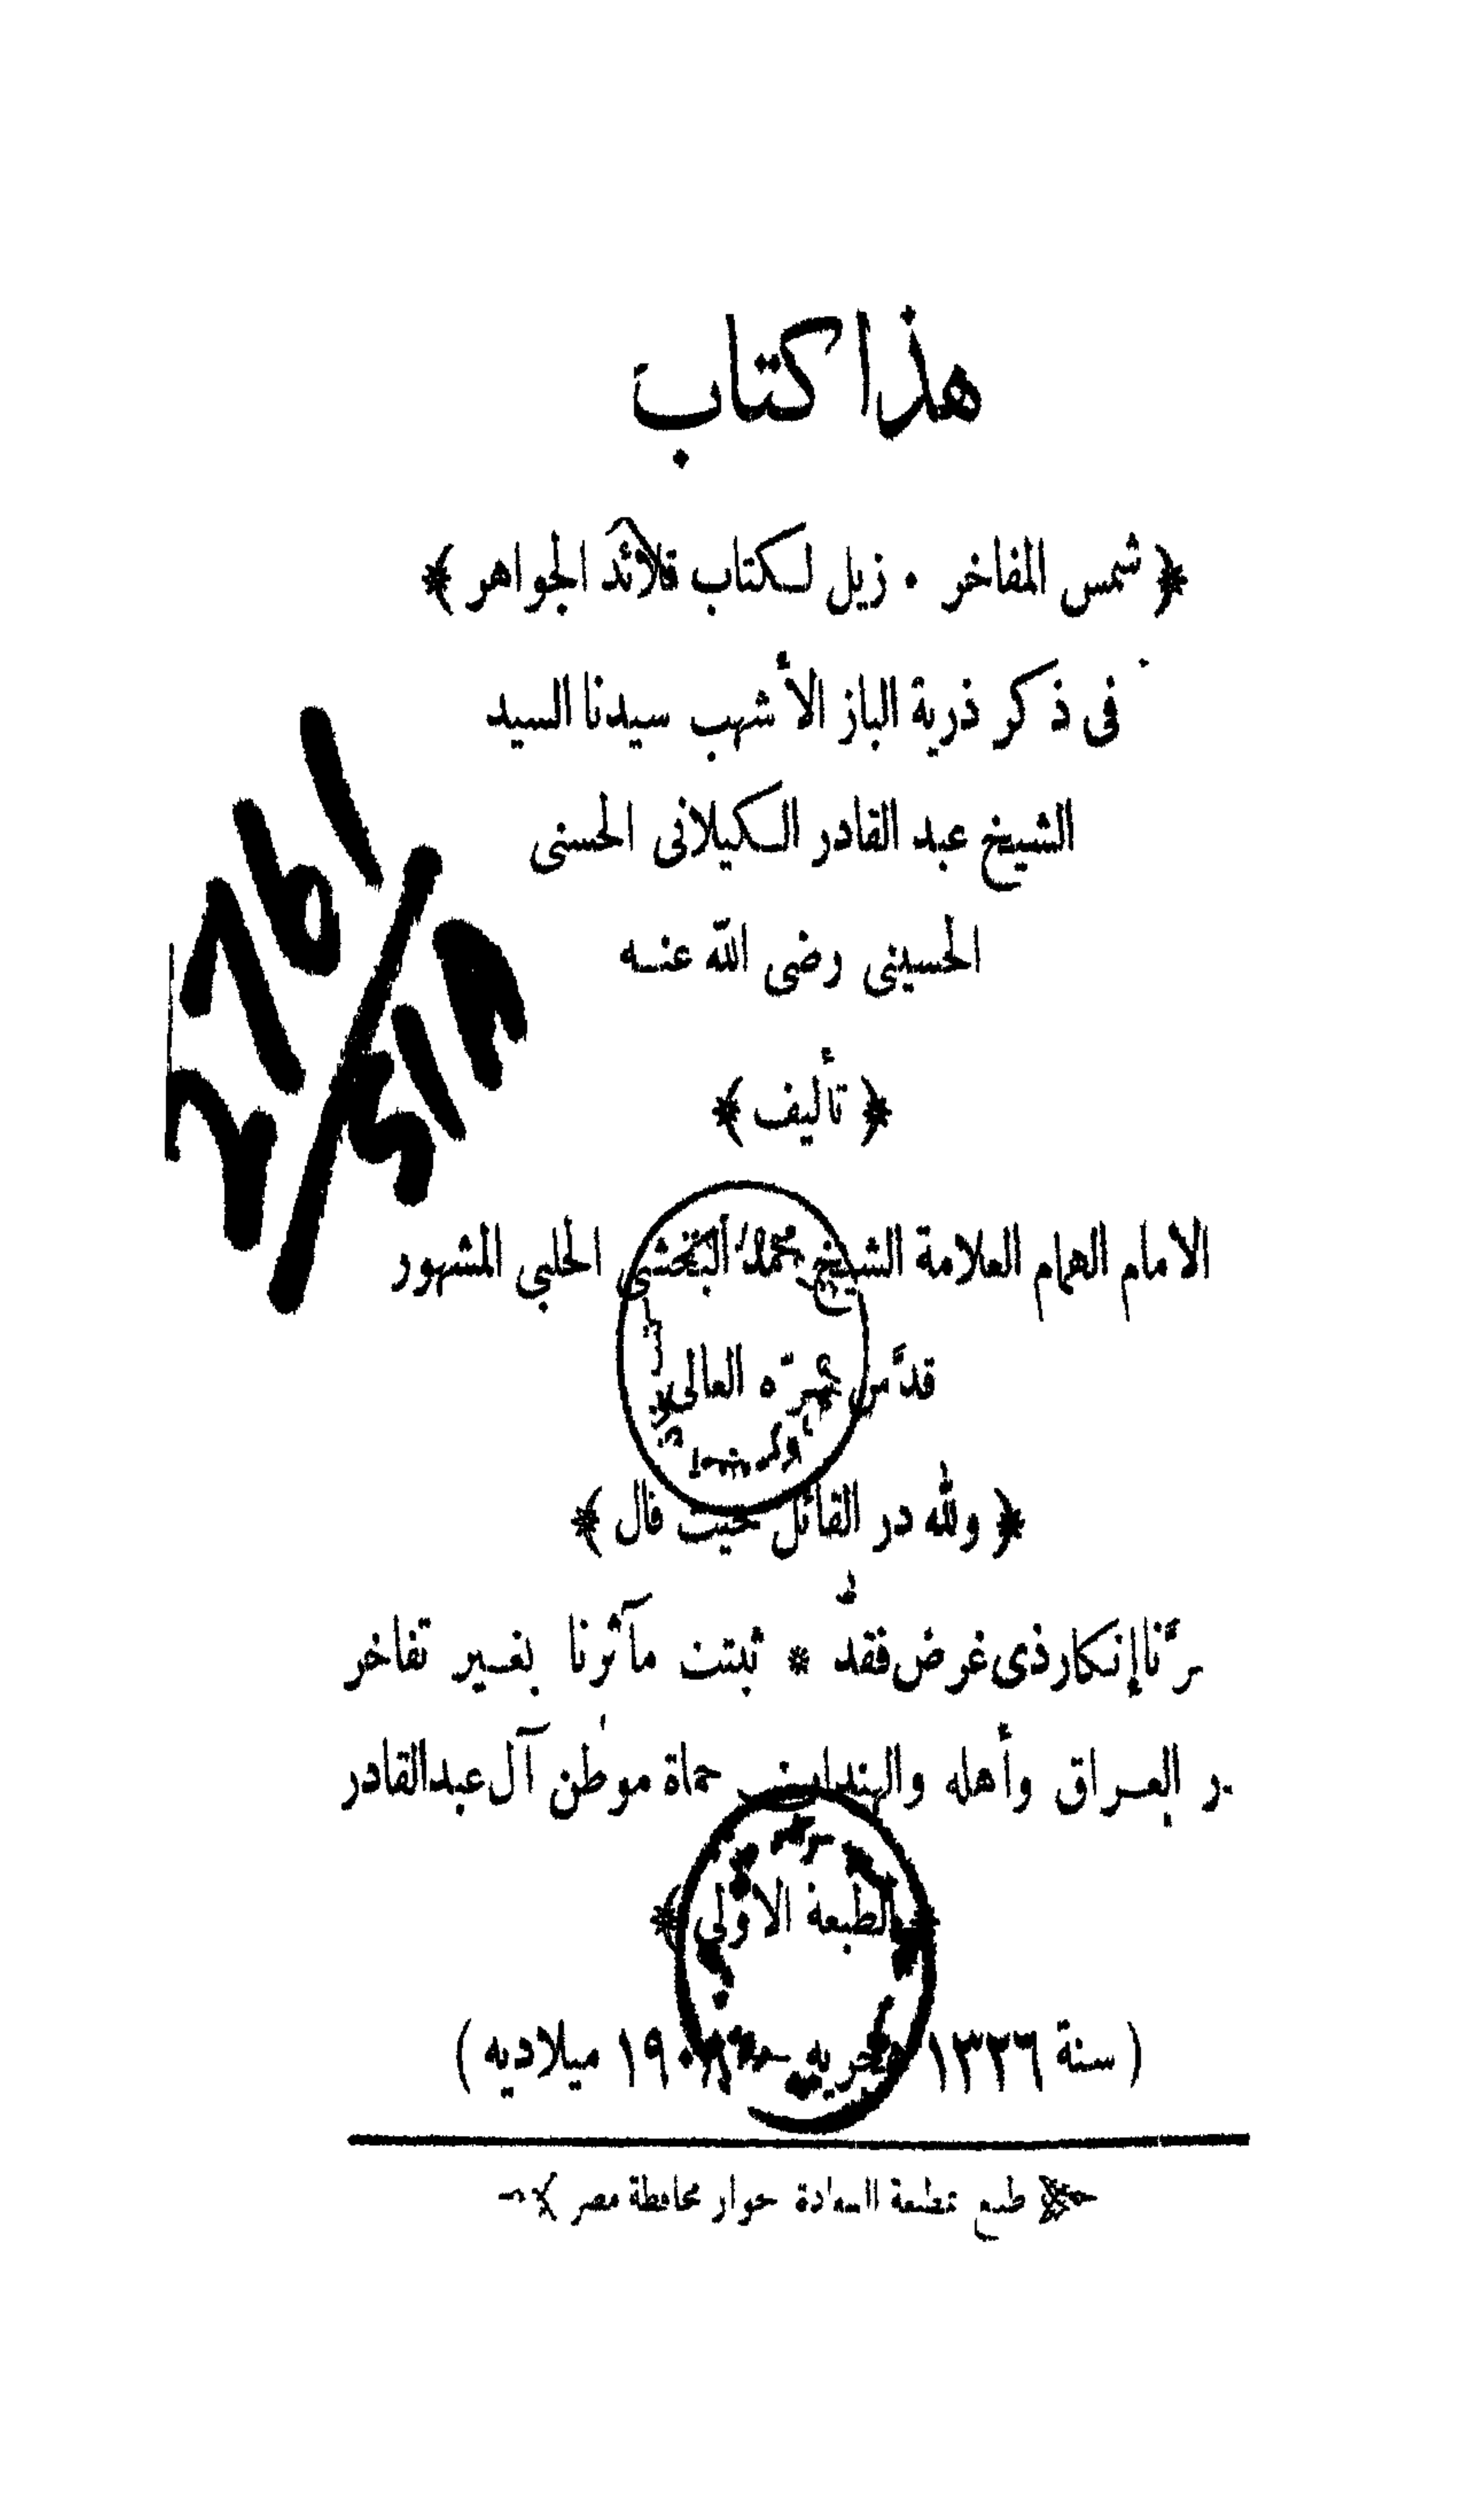 هذا كتاب
﴿ شمس المفاخر . زيل لكتاب قلائد الجواهر ﴾
فى ذكر ذرية الباز الأشهب سيدنا السيد
الشيخ عبد القادر الكيلانى الحسنى
الحسينى رضى الله عنه
﴿ تأليف ﴾
الامام الهمام العلامة الشيخ محمد البخشى الحلبى المشهور
قدّس سرّه العالى
﴿ ولله در القائل حيث قال ﴾
إنكار ذى غرض فقد * ثبتت مآثرنا بغير تفاخر
العراق وأهله والهند حماة موطن آل عبد القادر
﴿ الطبعة الاولى ﴾
(سنة ١٣٣٦ هجريه ميلاديه)
طبع بمطبعة السعادة بجوار محافظة مصر